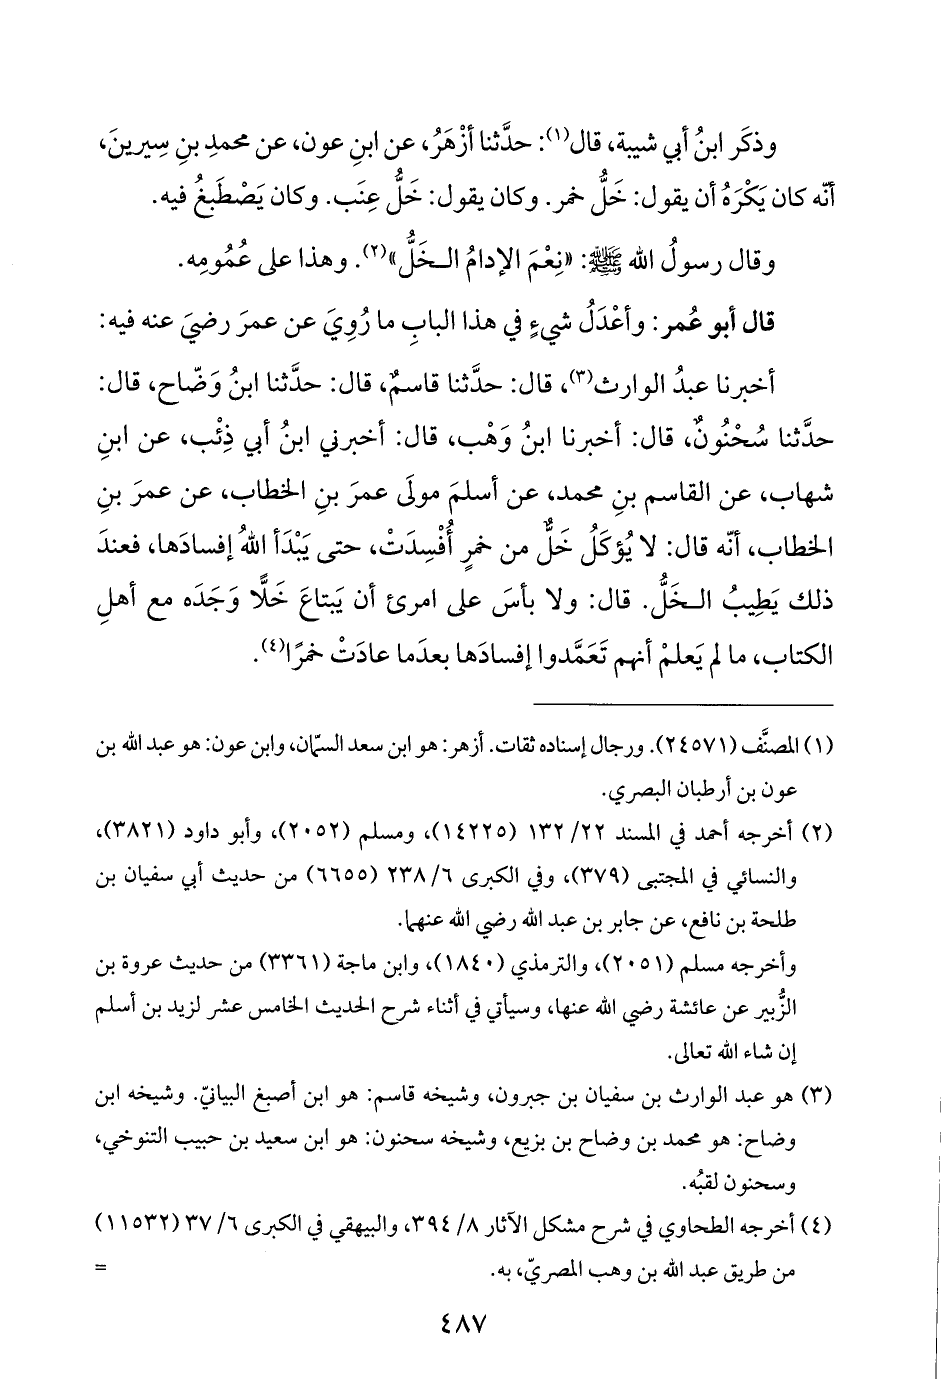 وذكَر ابنُ أبي شيبة، قال(١): حدَّثنا أزْهَرُ، عن ابنِ عون، عن محمدِ بنِ سِيرينَ،
أنّه كان يَكْرَهُ أن يقول: خَلُّ خمر. وكان يقول: خَلُّ عِنَب. وكان يَصْطَبغُ فيه.
وقال رسولُ الله ﷺ: «نِعْمَ الإدامُ الـخَلُّ»(٢). وهذا على عُمُومِه.
قال أبو عُمر: وأعْدَلُ شيءٍ في هذا البابِ ما رُوِيَ عن عمرَ رضيَ عنه فيه:
أخبرنا عبدُ الوارث(٣)، قال: حدَّثنا قاسمٌ، قال: حدَّثنا ابنُ وَضّاح، قال:
حدَّثنا سُحْنُونٌ، قال: أخبرنا ابنُ وَهْب، قال: أخبرني ابنُ أبي ذِئْب، عن ابنِ
شهاب، عن القاسم بنِ محمد، عن أسلمَ مولَى عمرَ بنِ الخطاب، عن عمرَ بنِ
الخطاب، أنّه قال: لا يُؤكَلُ خَلٌّ من خمرٍ أُفْسِدَتْ، حتى يَبْدَأ اللهُ إفسادَها، فعندَ
ذلك يَطِيبُ الـخَلُّ. قال: ولا بأسَ على امرئ أن يَبتاعَ خَلًّا وَجَدَه مع أهلِ
الكتاب، ما لم يَعلمْ أنهم تَعَمَّدوا إفسادَها بعدَما عادَتْ خمرًا(٤).
(١) المصنَّف (٢٤٥٧١). ورجال إسناده ثقات. أزهر: هو ابن سعد السمّان، وابن عون: هو عبد الله بن
عون بن أرطبان البصري.
(٢) أخرجه أحمد في المسند ٢٢/ ١٣٢ (١٤٢٢٥)، ومسلم (٢٠٥٢)، وأبو داود (٣٨٢١)،
والنسائي في المجتبى (٣٧٩)، وفي الكبرى ٦/ ٢٣٨ (٦٦٥٥) من حديث أبي سفيان بن
طلحة بن نافع، عن جابر بن عبد الله رضي الله عنهما.
وأخرجه مسلم (٢٠٥١)، والترمذي (١٨٤٠)، وابن ماجة (٣٣٦١) من حديث عروة بن
الزُّبير عن عائشة رضي الله عنها، وسيأتي في أثناء شرح الحديث الخامس عشر لزيد بن أسلم
إن شاء الله تعالى.
(٣) هو عبد الوارث بن سفيان بن جبرون، وشيخه قاسم: هو ابن أصبغ البيانيّ. وشيخه ابن
وضاح: هو محمد بن وضاح بن بزيع، وشيخه سحنون: هو ابن سعيد بن حبيب التنوخي،
وسحنون لقبُه.
(٤) أخرجه الطحاوي في شرح مشكل الآثار ٨/ ٣٩٤، والبيهقي في الكبرى ٦/ ٣٧ (١١٥٣٢)
من طريق عبد الله بن وهب المصريّ، به. =
٤٨٧